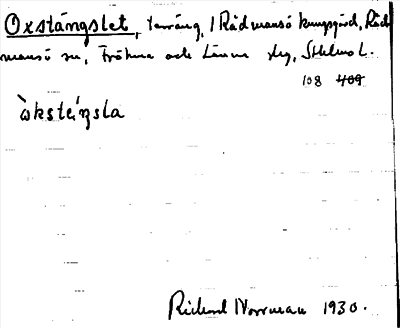 Oxstängslet, terräng, / Rådmansö kungsgård, Råd-
mansö sn, Frötuna och Länna skg, Sthlms l.
108 409
òkstéŋsla
Richard Norrman 1930.